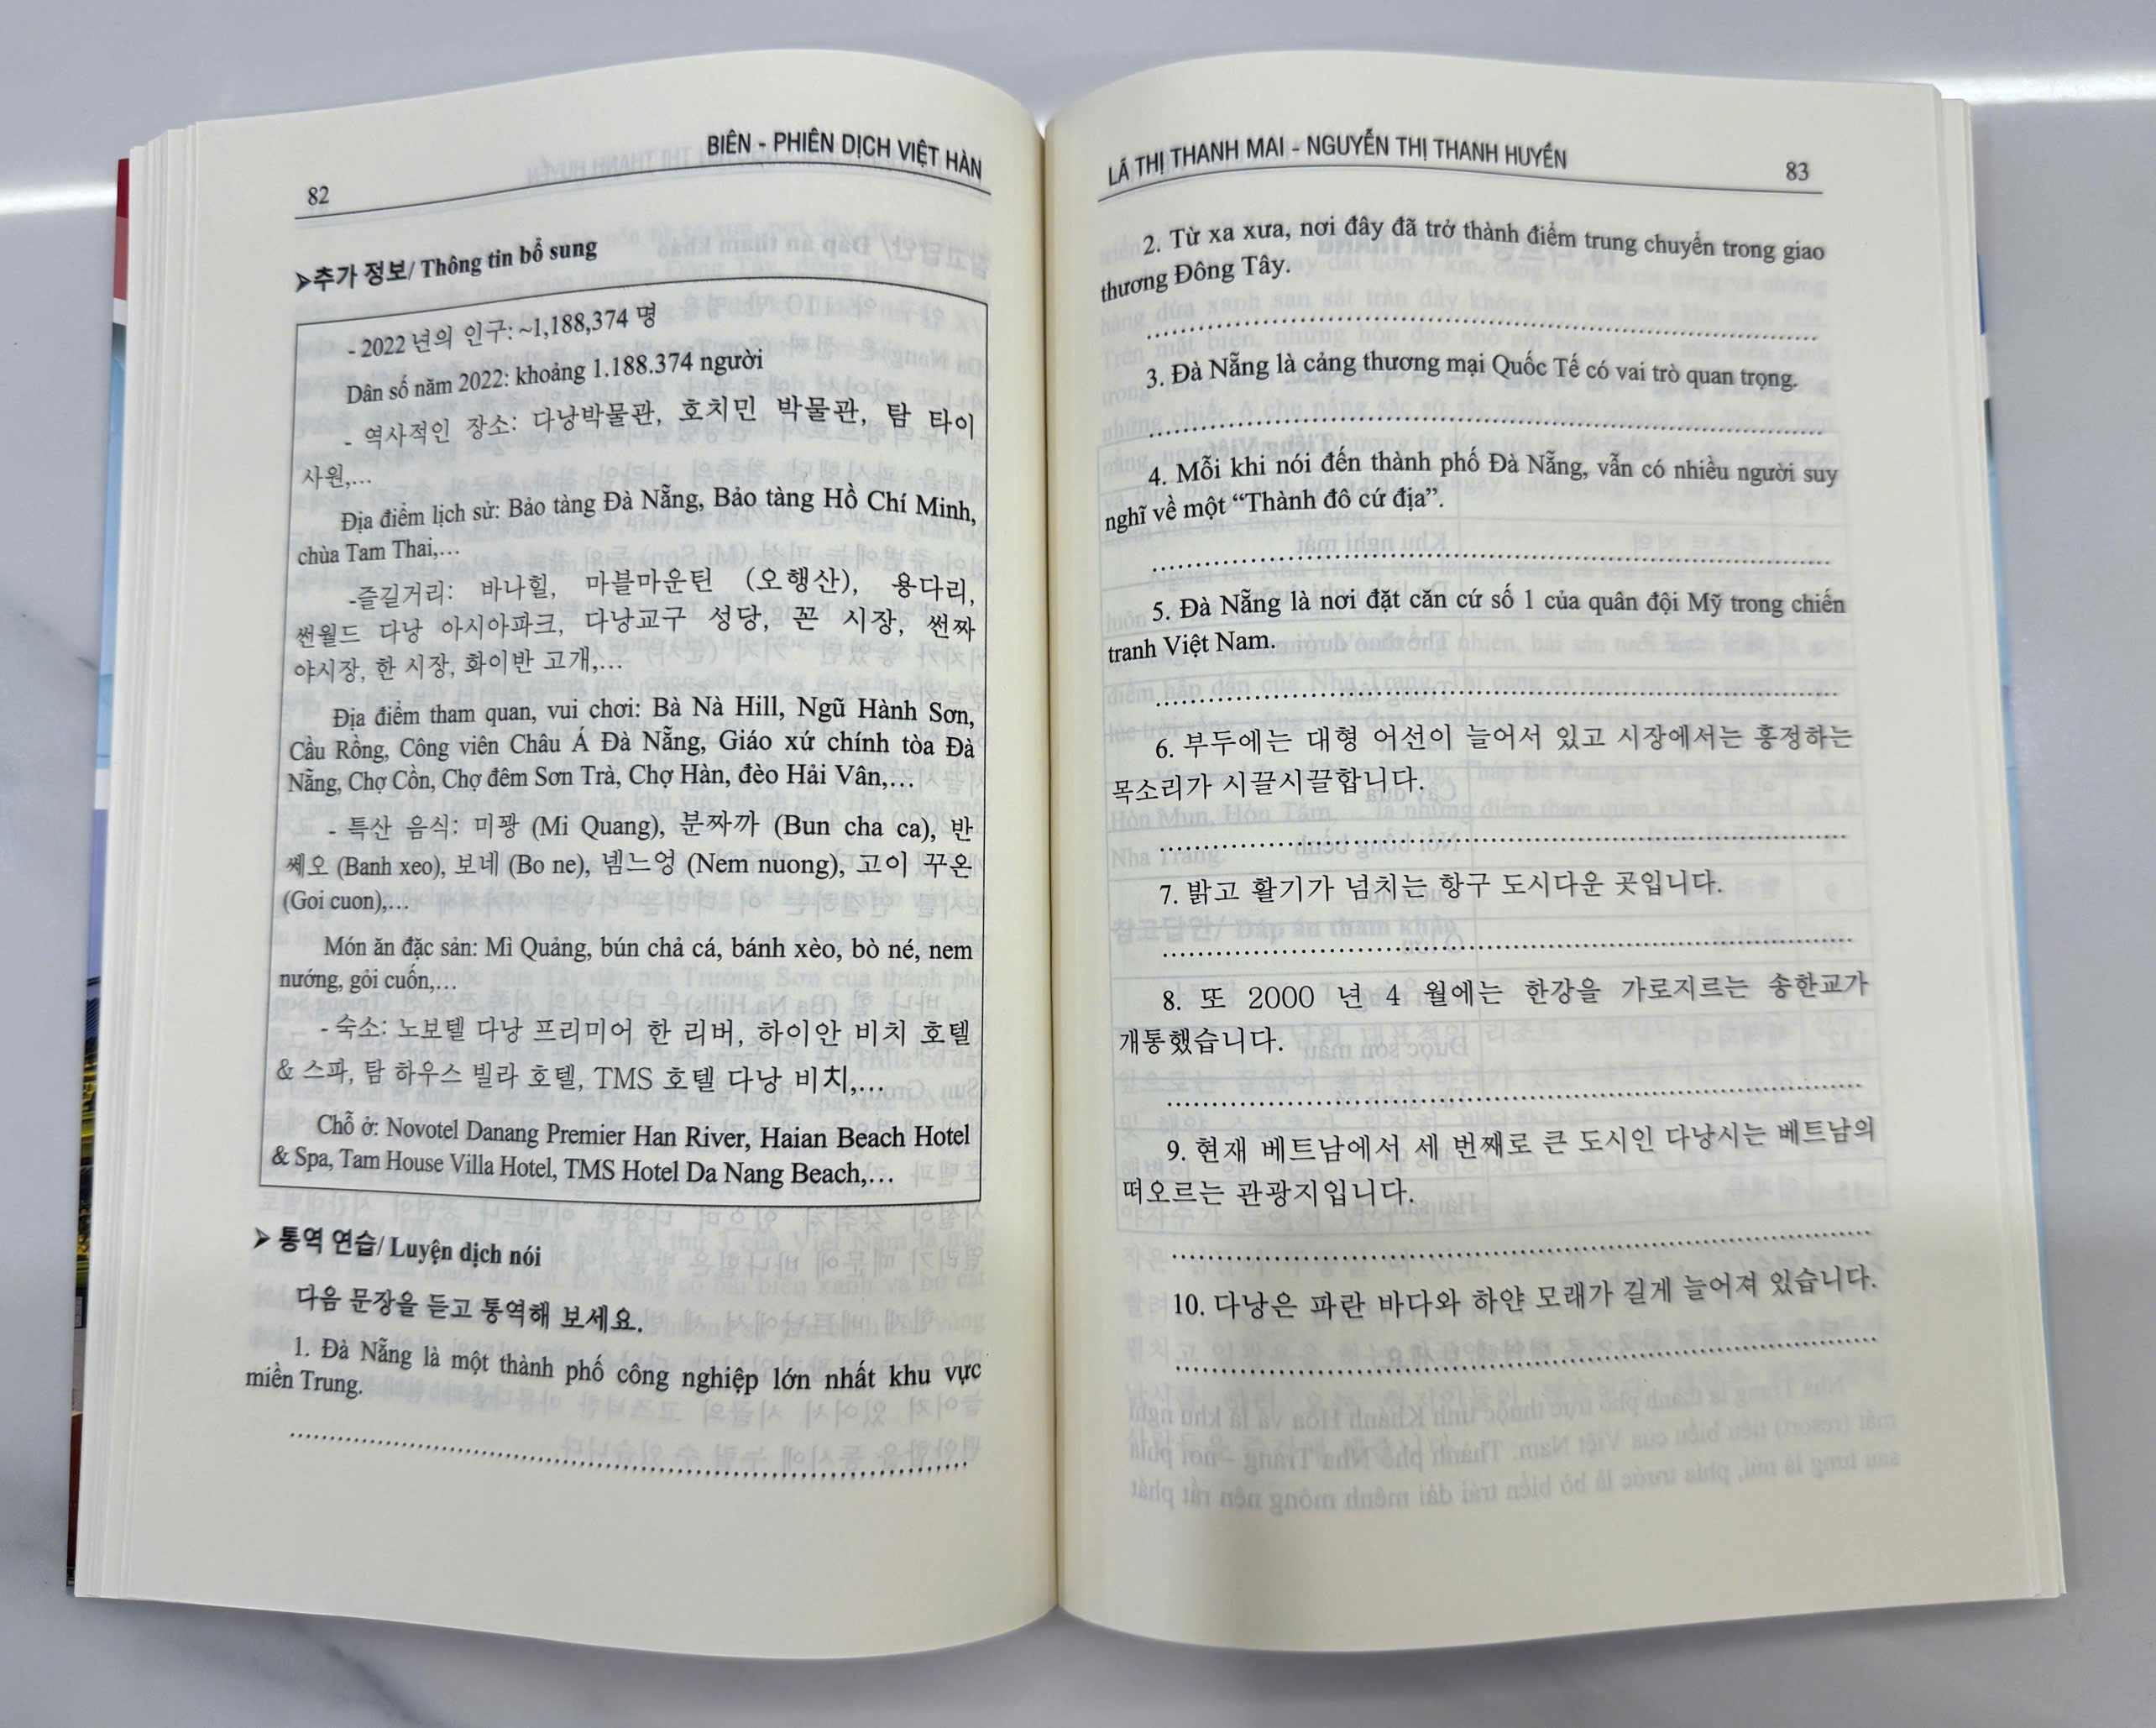 82
BIÊN - PHIÊN DỊCH VIỆT HÀN
➤추가 정보/ Thông tin bổ sung
- 2022 년의 인구: ~1,188,374 명
Dân số năm 2022: khoảng 1.188.374 người
- 역사적인 장소: 다낭박물관, 호치민 박물관, 탐 타이
사원,…
Địa điểm lịch sử: Bảo tàng Đà Nẵng, Bảo tàng Hồ Chí Minh,
chùa Tam Thai,…
-즐길거리: 바나힐, 마블마운틴 (오행산), 용다리,
썬월드 다낭 아시아파크, 다낭교구 성당, 꼰 시장, 썬짜
야시장, 한 시장, 화이반 고개,…
Địa điểm tham quan, vui chơi: Bà Nà Hill, Ngũ Hành Sơn,
Cầu Rồng, Công viên Châu Á Đà Nẵng, Giáo xứ chính tòa Đà
Nẵng, Chợ Cồn, Chợ đêm Sơn Trà, Chợ Hàn, đèo Hải Vân,…
- 특산 음식: 미꽝 (Mi Quang), 분짜까 (Bun cha ca), 반
쎄오 (Banh xeo), 보네 (Bo ne), 넴느엉 (Nem nuong), 고이 꾸온
(Goi cuon),…
Món ăn đặc sản: Mì Quảng, bún chả cá, bánh xèo, bò né, nem
nướng, gỏi cuốn,…
- 숙소: 노보텔 다낭 프리미어 한 리버, 하이안 비치 호텔
& 스파, 탐 하우스 빌라 호텔, TMS 호텔 다낭 비치,…
Chỗ ở: Novotel Danang Premier Han River, Haian Beach Hotel
& Spa, Tam House Villa Hotel, TMS Hotel Da Nang Beach,…
➤ 통역 연습/ Luyện dịch nói
다음 문장을 듣고 통역해 보세요.
1. Đà Nẵng là một thành phố công nghiệp lớn nhất khu vực
miền Trung.
LÃ THỊ THANH MAI - NGUYỄN THỊ THANH HUYỀN
83
2. Từ xa xưa, nơi đây đã trở thành điểm trung chuyển trong giao
thương Đông Tây.
3. Đà Nẵng là cảng thương mại Quốc Tế có vai trò quan trọng.
4. Mỗi khi nói đến thành phố Đà Nẵng, vẫn có nhiều người suy
nghĩ về một “Thành đô cứ địa”.
5. Đà Nẵng là nơi đặt căn cứ số 1 của quân đội Mỹ trong chiến
tranh Việt Nam.
6. 부두에는 대형 어선이 늘어서 있고 시장에서는 흥정하는
목소리가 시끌시끌합니다.
7. 밝고 활기가 넘치는 항구 도시다운 곳입니다.
8. 또 2000 년 4 월에는 한강을 가로지르는 송한교가
개통했습니다.
9. 현재 베트남에서 세 번째로 큰 도시인 다낭시는 베트남의
떠오르는 관광지입니다.
10. 다낭은 파란 바다와 하얀 모래가 길게 늘어져 있습니다.